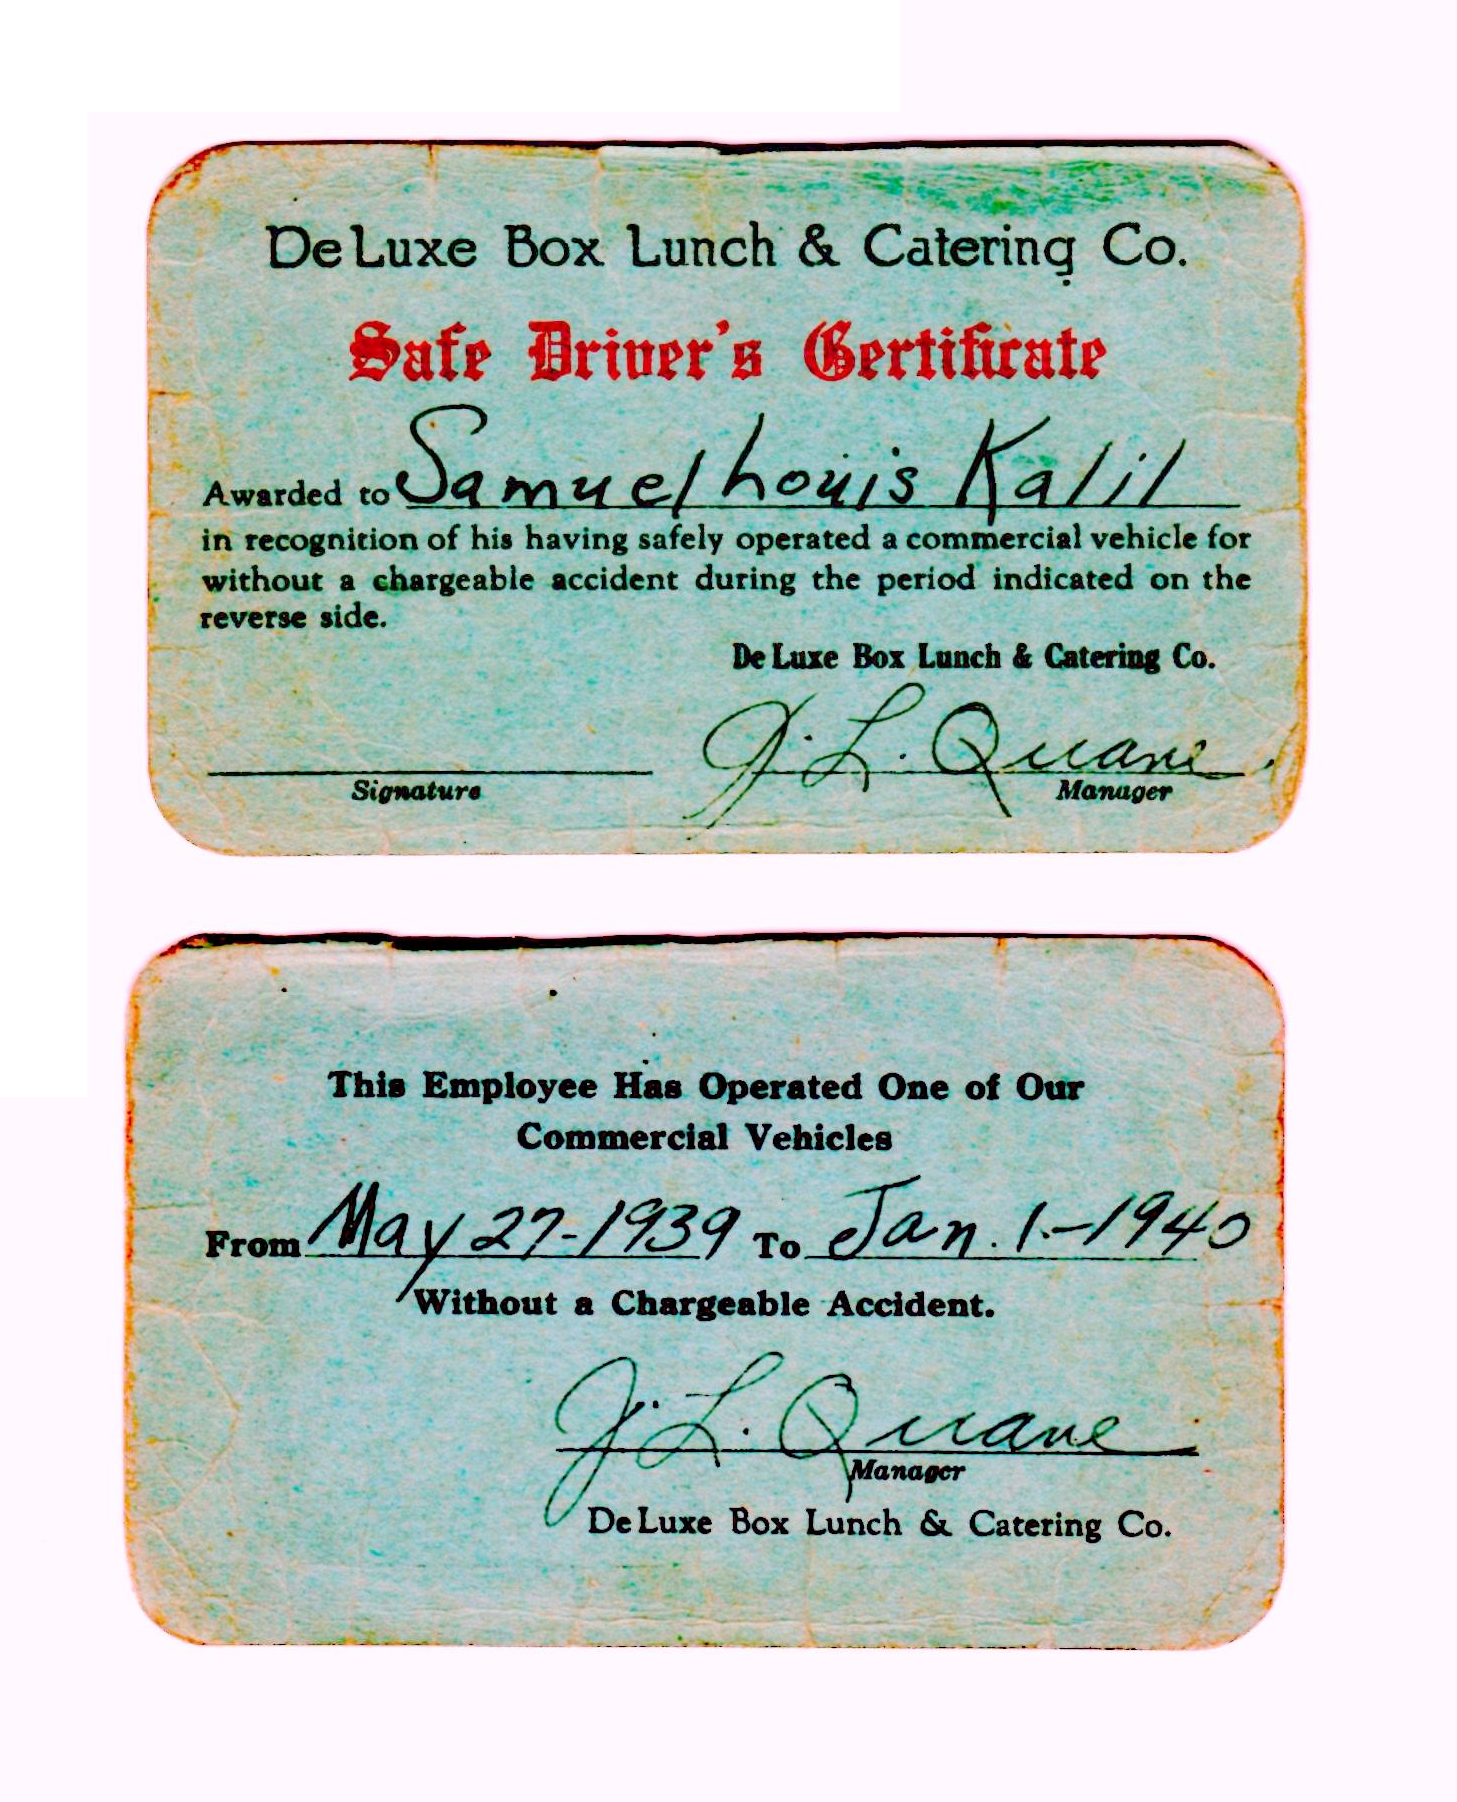 DeLuxe Box Lunch & Catering Co.
Safe Driver's Certificate
Awarded to Samuel Louis Kalil
in recognition of his having safely operated a commercial vehicle for
without a chargeable accident during the period indicated on the
reverse side.
DeLuxe Box Lunch & Catering Co.
J. L. Quane
Signature Manager
This Employee Has Operated One of Our
Commercial Vehicles
From May 27-1939 To Jan. 1-1940
Without a Chargeable Accident.
J. L. Quane
Manager
DeLuxe Box Lunch & Catering Co.